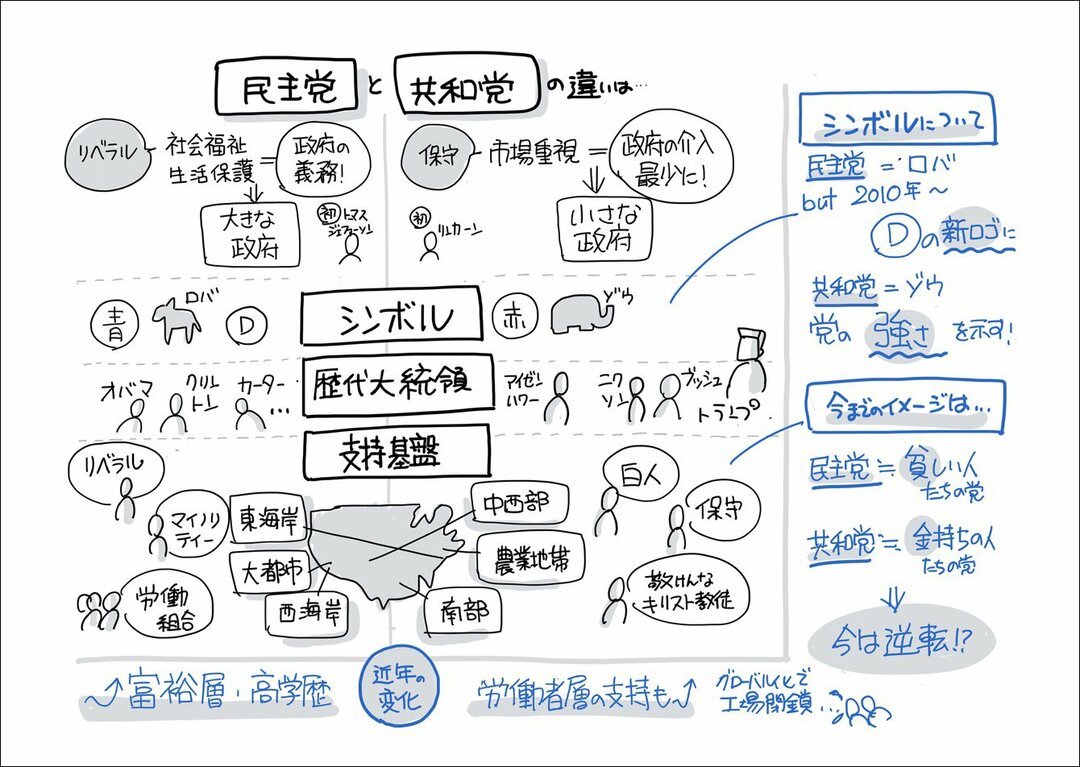 民主党 と 共和党 の違いは…
リベラル
社会福祉
生活保護
=
政府の
義務!
大きな
政府
初 トマス
ジェファーソン
保守
市場重視
=
政府の介入
最少に!
小さな
政府
初 リンカーン
シンボル
青
ロバ
D
赤
ゾウ
歴代大統領
オバマ
クリン
トン
カーター
…
アイゼン
ハワー
ニク
ソン
ブッシュ
トランプ
支持基盤
リベラル
マイノリ
ティー
労働
組合
東海岸
大都市
西海岸
中西部
農業地帯
南部
白人
保守
敬けんな
キリスト教徒
近年の
変化
〜↑富裕層・高学歴
労働者層の支持も〜↑
グローバル化で
工場閉鎖…
シンボルについて
民主党 = ロバ
but 2010年〜
Dの新ロゴに
共和党 = ゾウ
党の 強さ を示す!
今までのイメージは…
民主党≒貧しい人
たちの党
共和党≒金持ちの人
たちの党
今は逆転!?